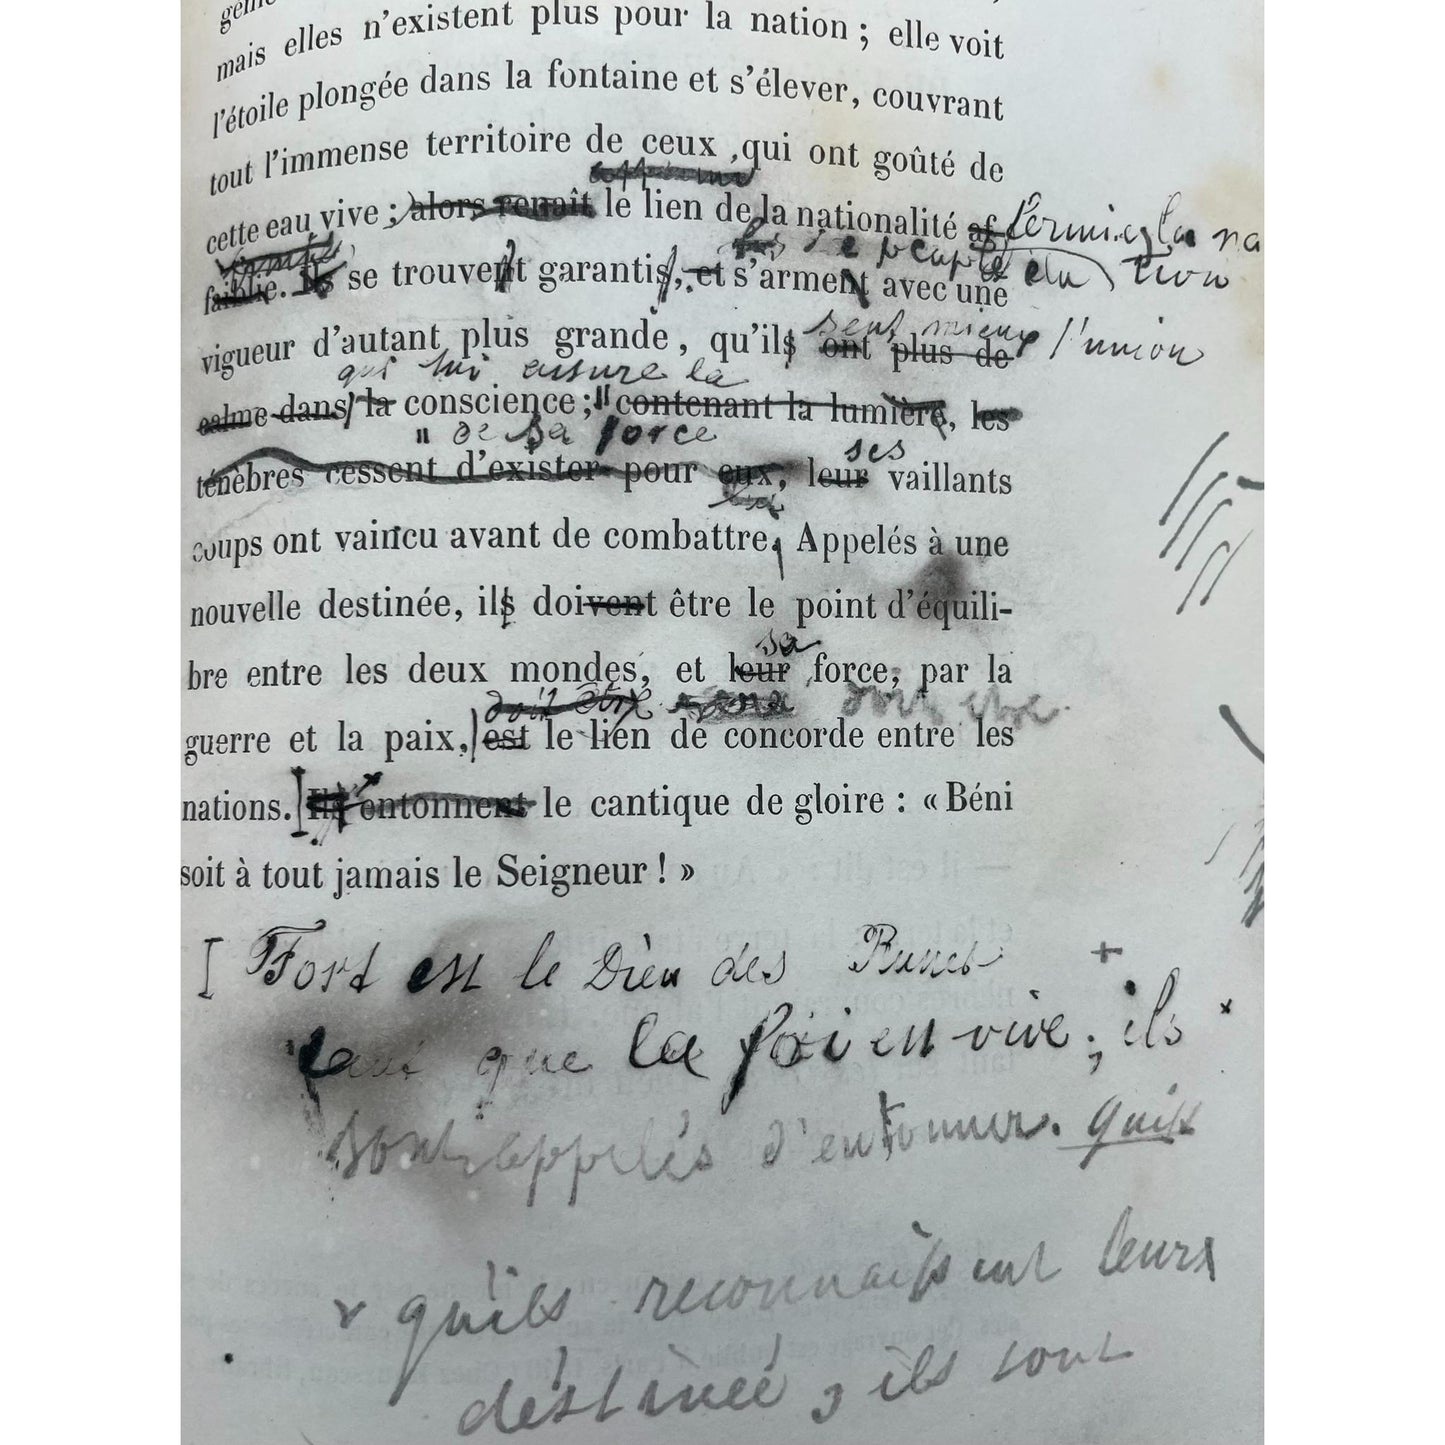 mais elles n'existent plus pour la nation ; elle voit
l'étoile plongée dans la fontaine et s'élever, couvrant
tout l'immense territoire de ceux , qui ont goûté de
cette eau vive ; alors renaît le lien de la nationalité af
fermi la na
tion
se peuple
faiblie. Ils se trouvent garantis, et s'arment avec une
sent mieux l'union
vigueur d'autant plus grande, qu'ils ont plus de
qui lui assure la
calme dans la conscience ; contenant la lumière, les
" de sa force
ses
ténèbres cessent d'exister pour eux, leur vaillants
lui
coups ont vaincu avant de combattre, Appelés à une
nouvelle destinée, ils doivent être le point d'équili-
sa
bre entre les deux mondes, et leur force, par la
doit être doit être
guerre et la paix, est le lien de concorde entre les
nations. Ils entonnent le cantique de gloire : « Béni
soit à tout jamais le Seigneur ! »
Fort est le Dieu des
tant que la foi en vive ; ils
sont appelés d'entonner. qu'ils
qu'ils reconnaissent leurs
destinée, ils sont